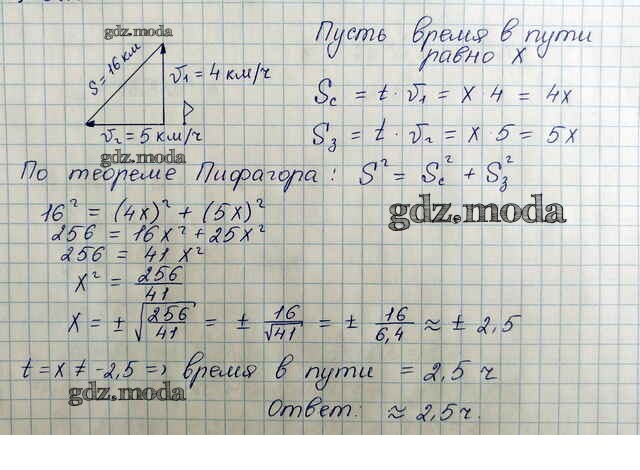 gdz.moda
S = 16 км
v₁ = 4 км/ч
v₂ = 5 км/ч
gdz.moda
Пусть время в пути
равно x
Sс = t · v₁ = x · 4 = 4x
Sз = t · v₂ = x · 5 = 5x
По теореме Пифагора: S² = Sс² + Sз²
gdz.moda
16² = (4x)² + (5x)²
256 = 16x² + 25x²
256 = 41x²
x² = 256/41
x = ± √(256/41) = ± 16/√41 = ± 16/6,4 ≈ ± 2,5
t = x ≠ -2,5 => время в пути = 2,5 ч
gdz.moda
Ответ: ≈ 2,5 ч.